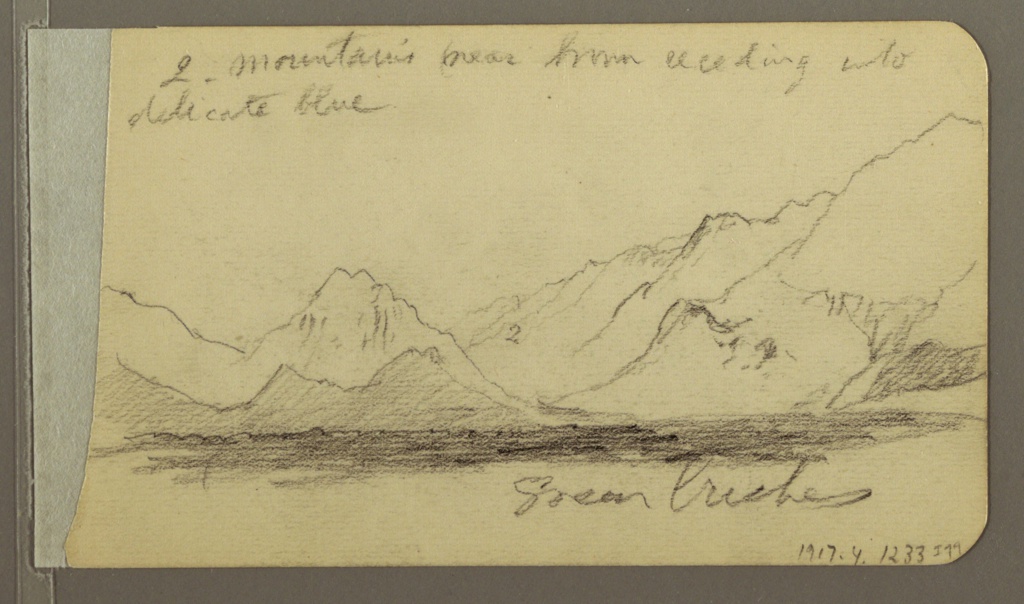 2 - mountains near brown receding into
delicate blue
2
Green bushes
1917.4.1233